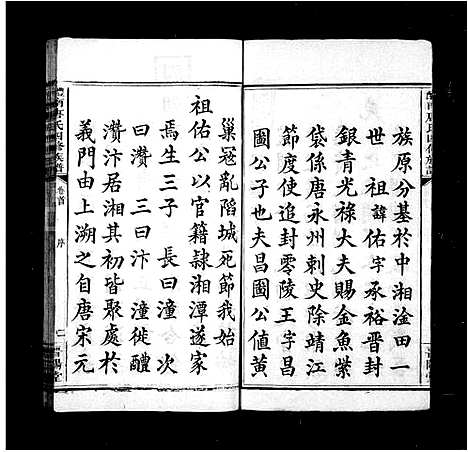 族原分基於中湘淦田一
世祖諱佑字承裕晋封
銀青光祿大夫賜金魚紫
袋係唐永州刺史除靖江
節度使追封零陵王字昌
圖公子也夫昌圖公値黄
巢冦亂䧟城死節我始
祖佑公以官籍隷湘潭遂家
焉生三子 長曰潼 次
曰灒 三曰汴 潼徙醴
灒汴居湘其初皆聚處於
義門由上溯之自唐宋元
卷首 序